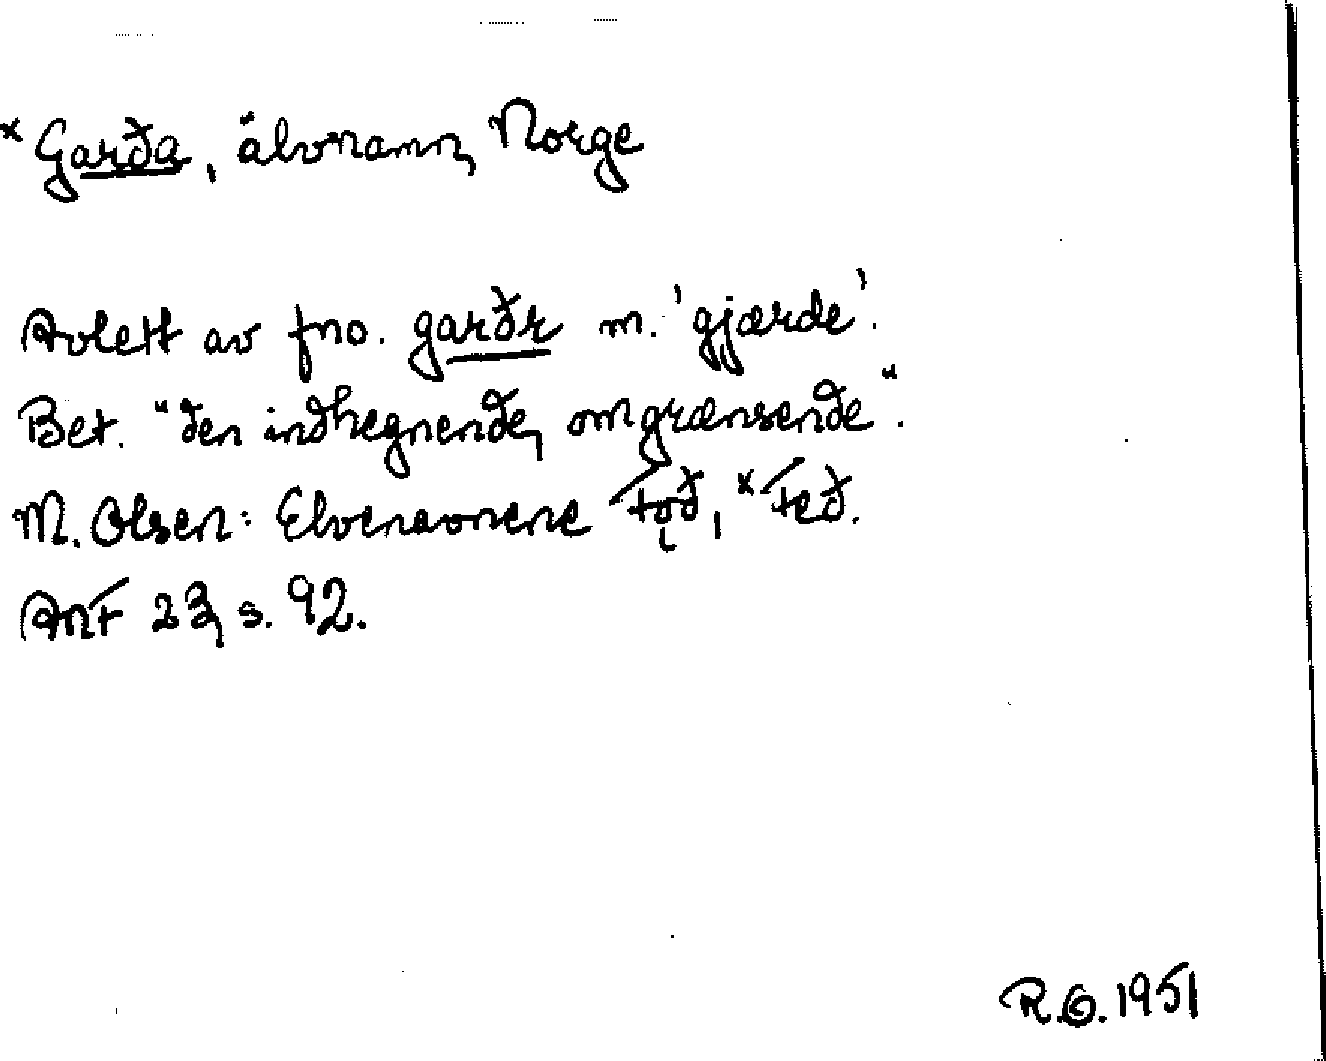 *Garða, älvnamn, Norge
Avlett av fno. garðr m. 'gjærde'.
Bet. "den indhegnende, omgrænsende".
M. Olsen: Elvenavnene Fǫð, *Feð.
ANF 23, s. 92.
R.O. 1951